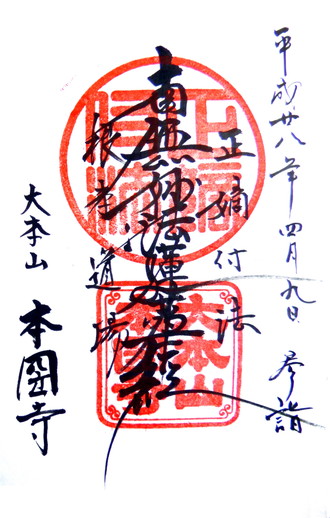 平成廿八年四月九日 参詣
正嫡付法
南無妙法蓮華経
根本道場
大本山
本圀寺
大本山